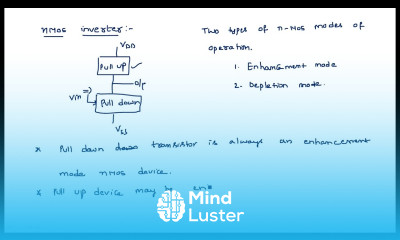 nMOS inverter:-
VDD
Pull up
O/P
Vin
Pull down
VSS
Two types of n-MOS modes of
operation.
1. Enhancement mode
2. Depletion mode.
* Pull down down transistor is always an enhancement
mode nMOS device.
* Pull up device may
Mind
Luster